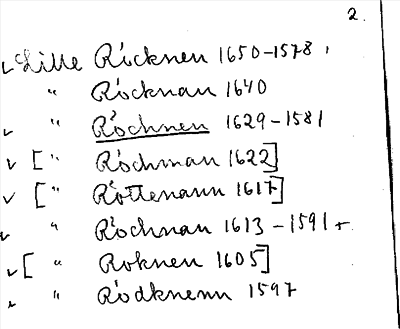 2.
✓ Lille Röcknen 1650-1578,
" Röcknau 1640
✓ " Röchnen 1629-1581
✓ [" Röchmau 1622]
✓ [" Röttenann 1617]
✓ " Röchnau 1613-1591+
✓ [" Roknen 1605]
✓ " Rödknenn 1597